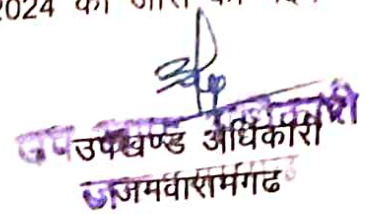 2024 को जारी की
उपखण्ड अधिकारी
जमवारामगढ